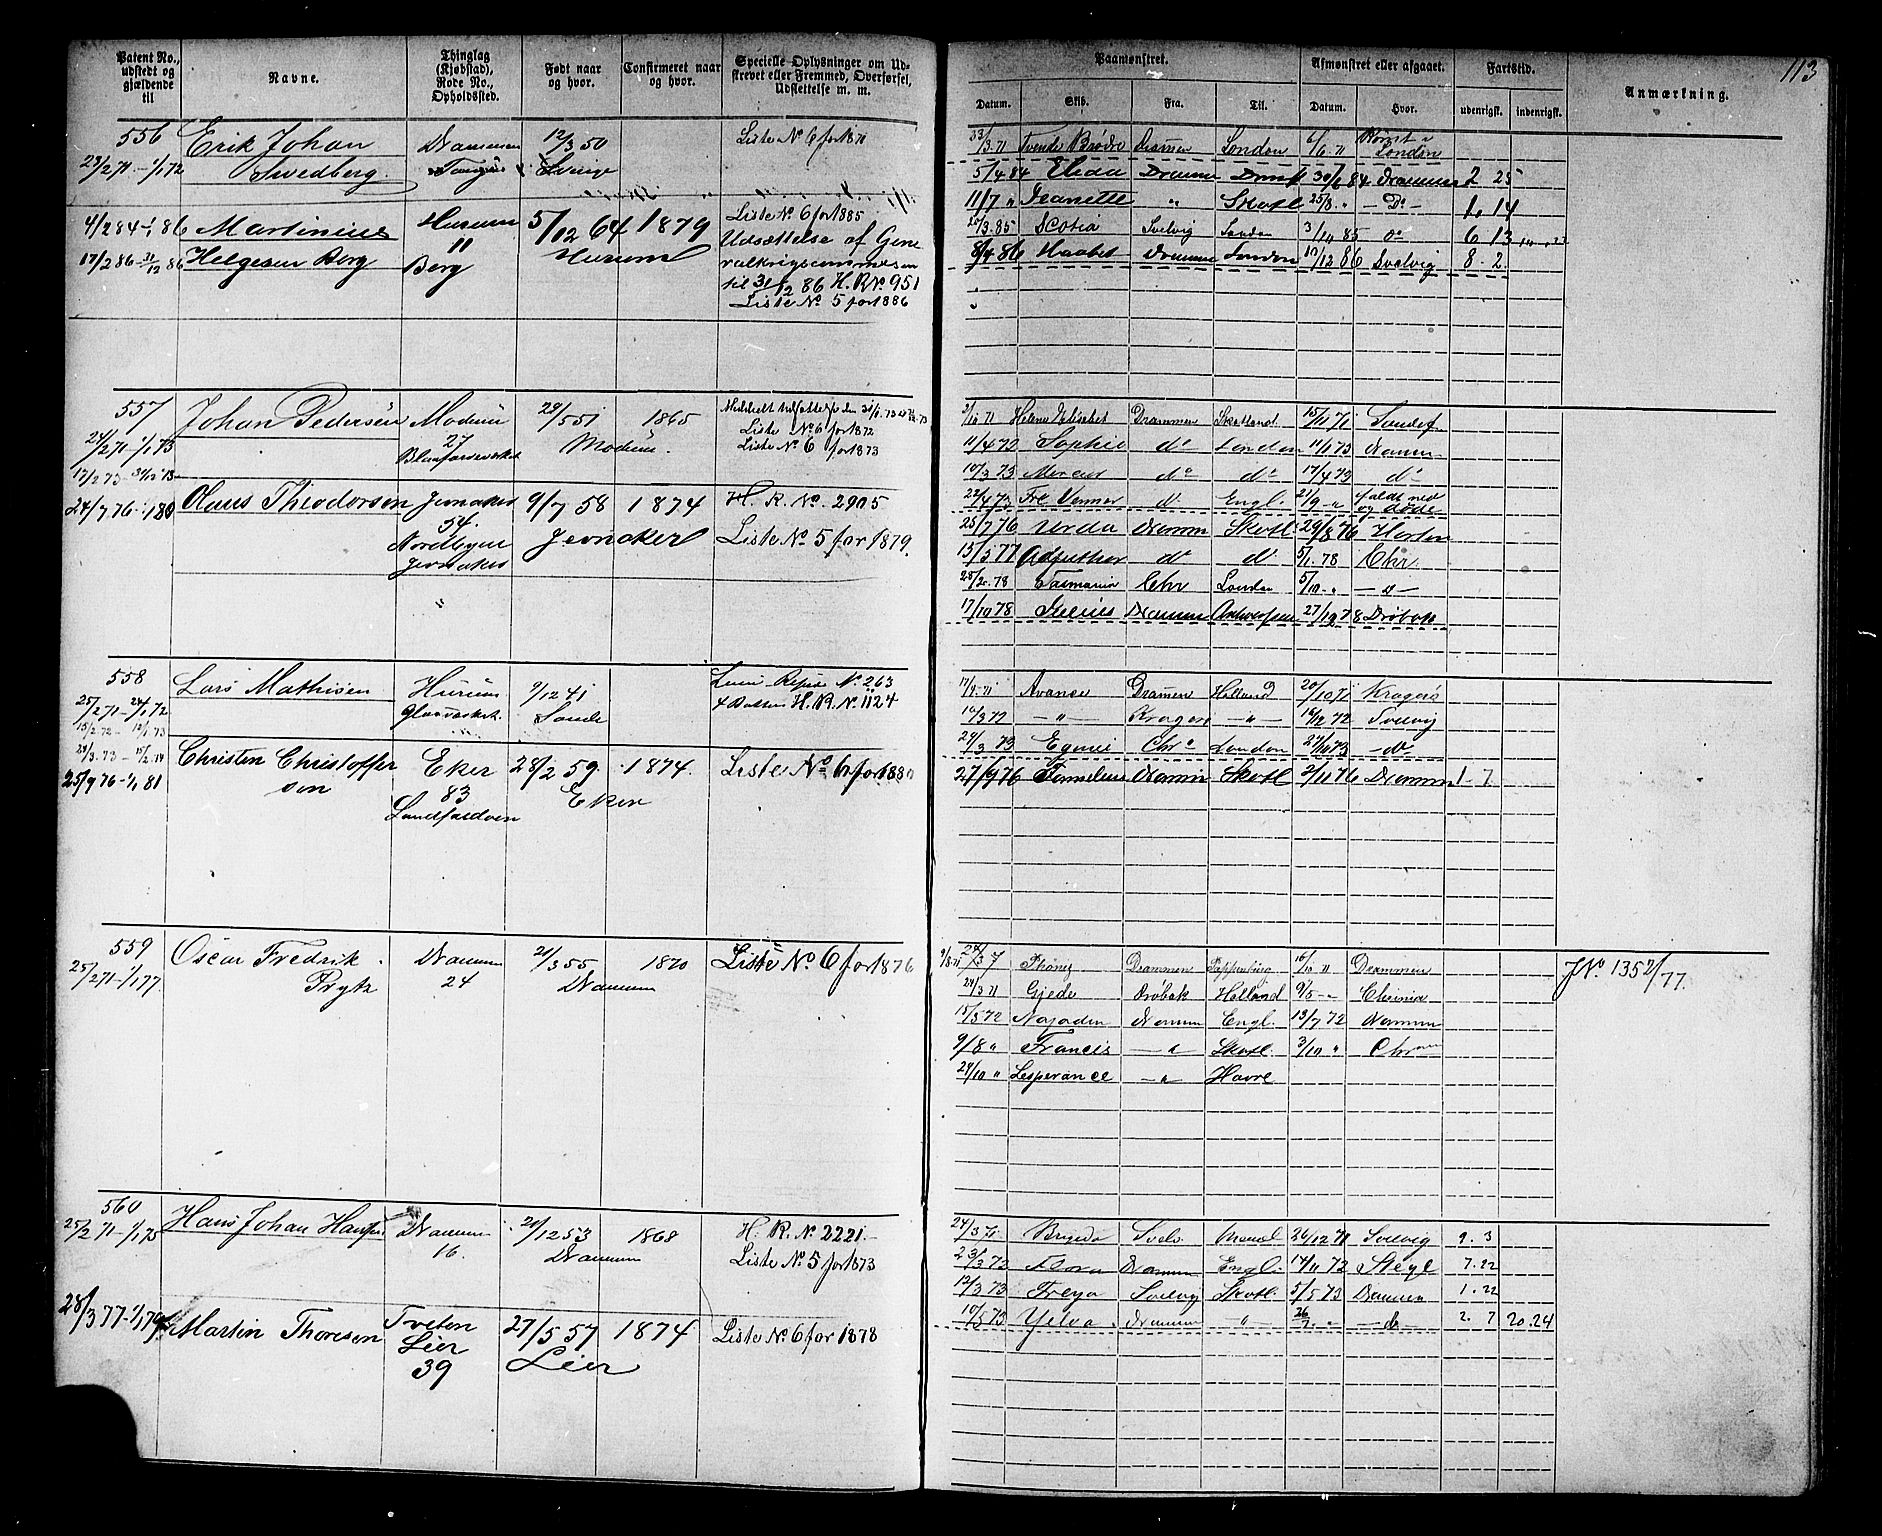 113
Patent No., udstedt og gjældende til
Navne.
Thinglag (Kjøbstad), Rode No., Opholdssted.
Født naar og hvor.
Confirmeret naar og hvor.
Specielle Oplysninger om Udskrevet eller Fremmed, Overførsel, Udslettelse m. m.
Paamønstret.
Afmønstret eller afgaaet.
Fartstid.
Anmærkning.
Datum. Skib. Fra. Til. Datum. Hvor. udenrigsk. indenrigsk.
556 Erik Johan Drammen 12/3 50 Liste No 6 for 1871
23/2 71 - 1/1 72 Swedberg
4/2 84 - 1/1 86 Martinius Hurum 5/12 64 1879 Liste No. 6 for 1885
17/2 86 - 31/12 86 Helgesen Berg 11 Hurum Udsættelse af Gene
Berg ralkrigscommissen
til 31/12 86 H. R No. 951
Liste No 5 for 1886
Tvende Brødre Drammen London 6/6 71
London
5/4 84 Elida Drammen 30/6 84 Drammen 2 25
11/7 " Jeanette " Skotl 25/8 " - Do - 1. 14
20/3 85 Scotia Svelvig London 3/10 85 do 6 13
8/4 86 Haabet Drammen London 10/12 86 Svelvig 8. 2.
557 Johan Pedersen Modum 29/5 51 1865
24/2 71 - 1/1 73 27 Modum. Liste No 6 for 1872
17/2 73 - 31/12 73 Blaafarveværket Liste No 6 for 1873
24/7 76 - 1/1 80 Olaus Theodorsen Jevnaker 9/7 58 1874 H. R. No. 2905
54. Jevnaker Liste No. 5 for 1879.
Nordbyen
Jevnaker
2/10 71 Helene Elisabet Drammen Skotland 15/11 71 Sandef.
11/4 72 Sophie do London 11/1 73 Dramn
10/3 73 Mercur do do 17/4 73 do
22/4 73 Fre Venner do Engl. 21/9 " faldt ned
og døde
25/7 76 Verda Dramm Skotl. 29/8 76 Horten
13/3 77 do do 5/1. 78 Chr.
28/2. 78 Tasmania Chr London 5/10 " - " -
17/10 78 Drammn Antwerpen 27/12 78 Drøbak
558 Lars Mathisen Hurum 9/12 41 No. 263
25/2 71 - 24/1 72 Glasværket. Sande H. R. No. 1124
15/2 72 - 12/1 73
24/3. 73 - 15/2 74 Christen Christoffer Eker 28/2 59. 1874. Liste No 6 for 1880
25/9 76 - 1/1 81 sen 83 Eker
17/9 71 Avance Drammen Holland 20/10 71 Kragerø
10/3 72 - " - Kragerø - " - 16/12 72 Svelvig
24/3 73 Chra London 27/10 73 - do -
27/9 76 Dramm Skotl 2/11 76 Dramm 1. 7.
559 Oscar Fredrik Drammen 21/3 55 1870 Liste No. 6 for 1876
25/2 71 - 1/1 77. Prytz 24 Drammen
Drammen Pappenburg 16/10 " Drammen J No. 1352/77.
24/3 71 Gjede Drøbak Holland 9/5 "
15/5 72 Najaden Dramm Engl. 13/7 72 Dramm
9/8 " Francis - " - Skotl. 3/10 " Chr
24/10 " Lesperance - " - Havre
560 Hans Johan Hansen Drammen 20/12 53 1868 H. R. No. 2221.
25/2 71 - 1/1 75 16. Drammen Liste No. 5 for 1873
28/3 77 - 1/1 79 Martin Thoresen Tveten 27/5 57 1874 Liste No. 6 for 1878
Lier Lier
39
24/3 71 Svelv. 24/12 71 Svelvig 9. 3
23/3 72 Flora Drammn Engl. 14/11 72 7. 22
12/3 73 Freya Svelvig Skotl. 5/5 73 Drammen 1. 22
10/5 73 Ydva Drammn - " - 26/7. " - do - 2. 7 20. 24